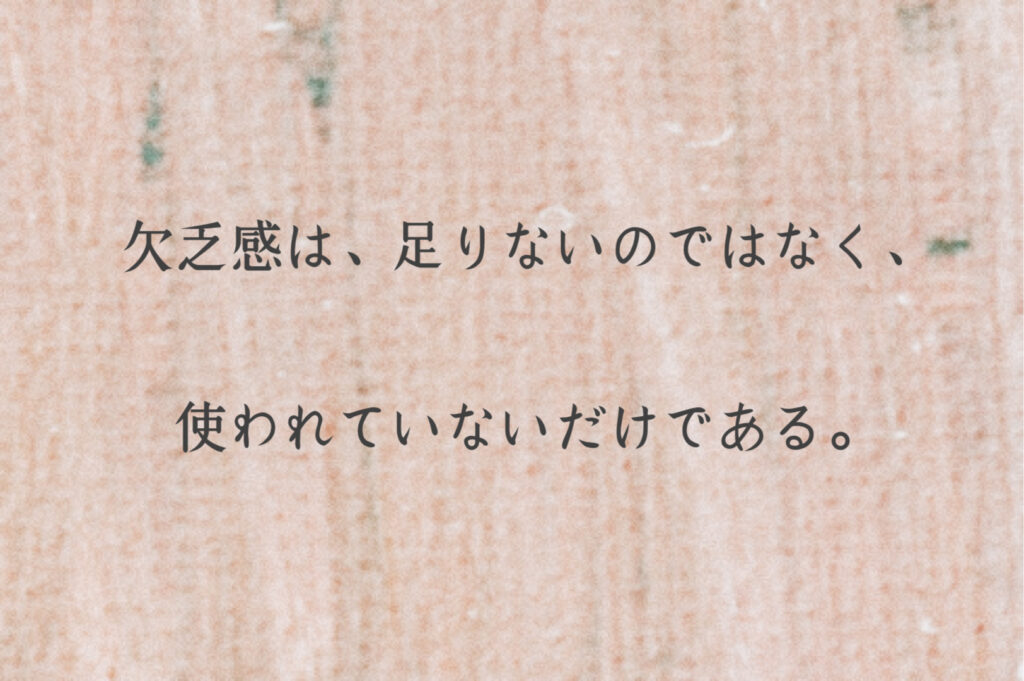 欠乏感は、足りないのではなく、
使われていないだけである。